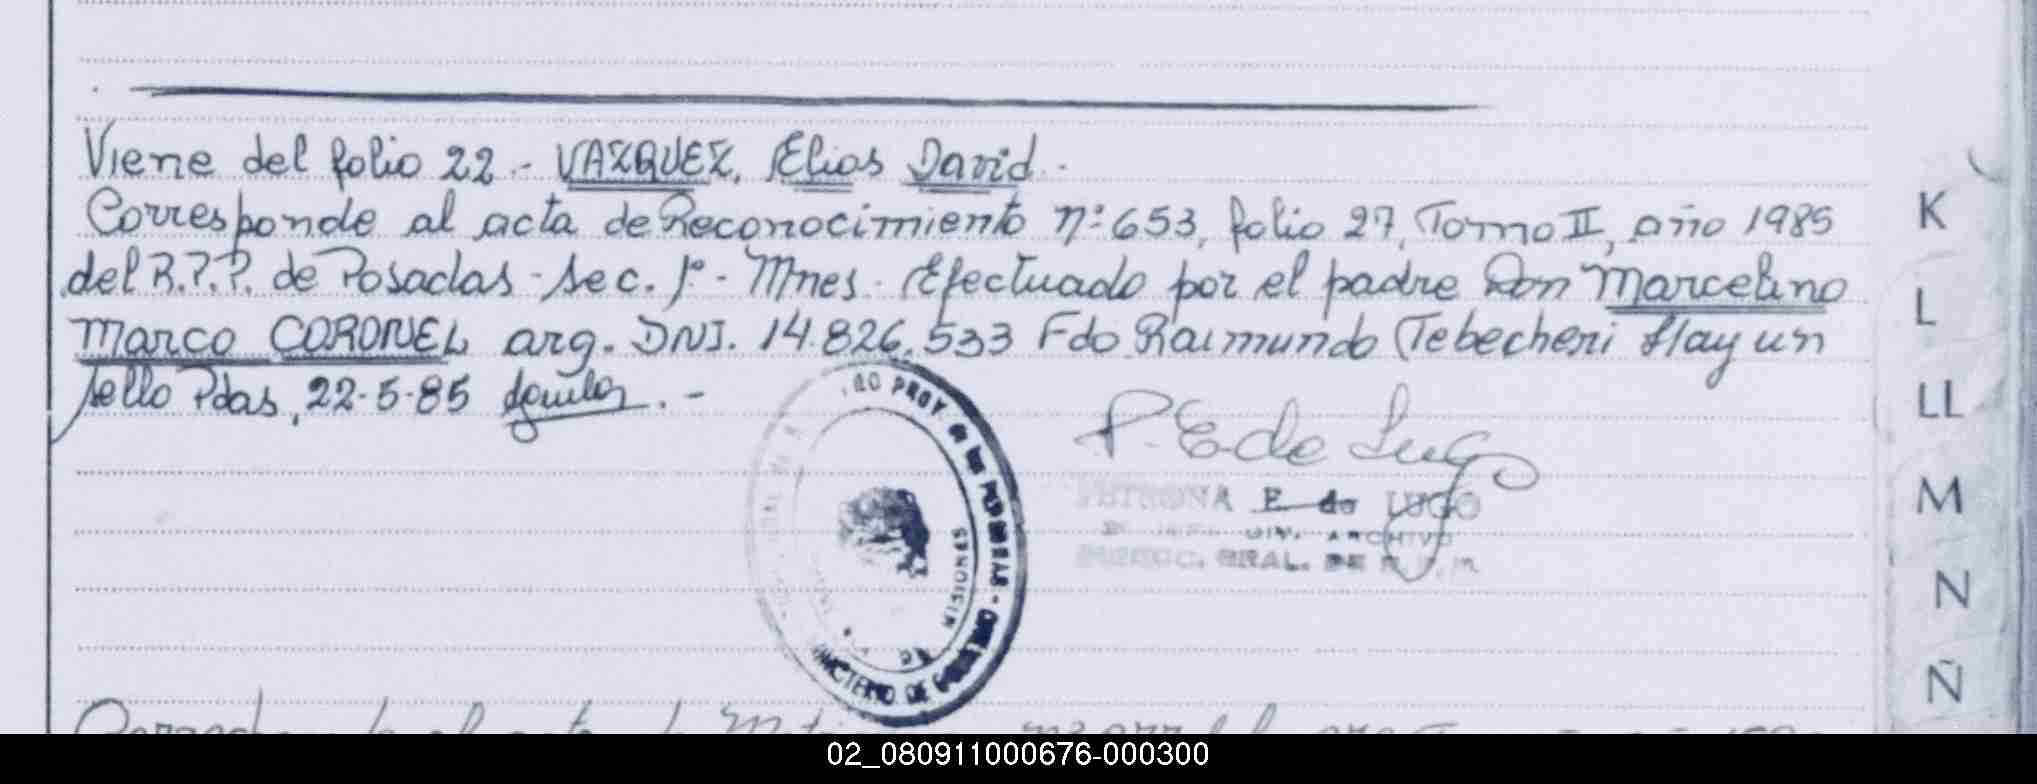 Viene del folio 22.- VAZQUEZ, Elias David.-
Corresponde al acta de Reconocimiento nº 653, folio 27, Tomo II, año 1985
del R.P.P. de Posadas - Sec. 1º - Mnes. Efectuado por el padre Don Marcelino
Marco CORONEL arg. DNI. 14.826.533 Fdo Raimundo Tebecheri Hay un
sello Pdas, 22-5-85 .-
P. E. de Lugo
PETRONA E. de LUGO
DIV. ARCHIVO
GRAL. DE
PROV. de las PERSONAS
MISIONES
MINISTERIO DE
K
L
LL
M
N
Ñ
02_080911000676-000300